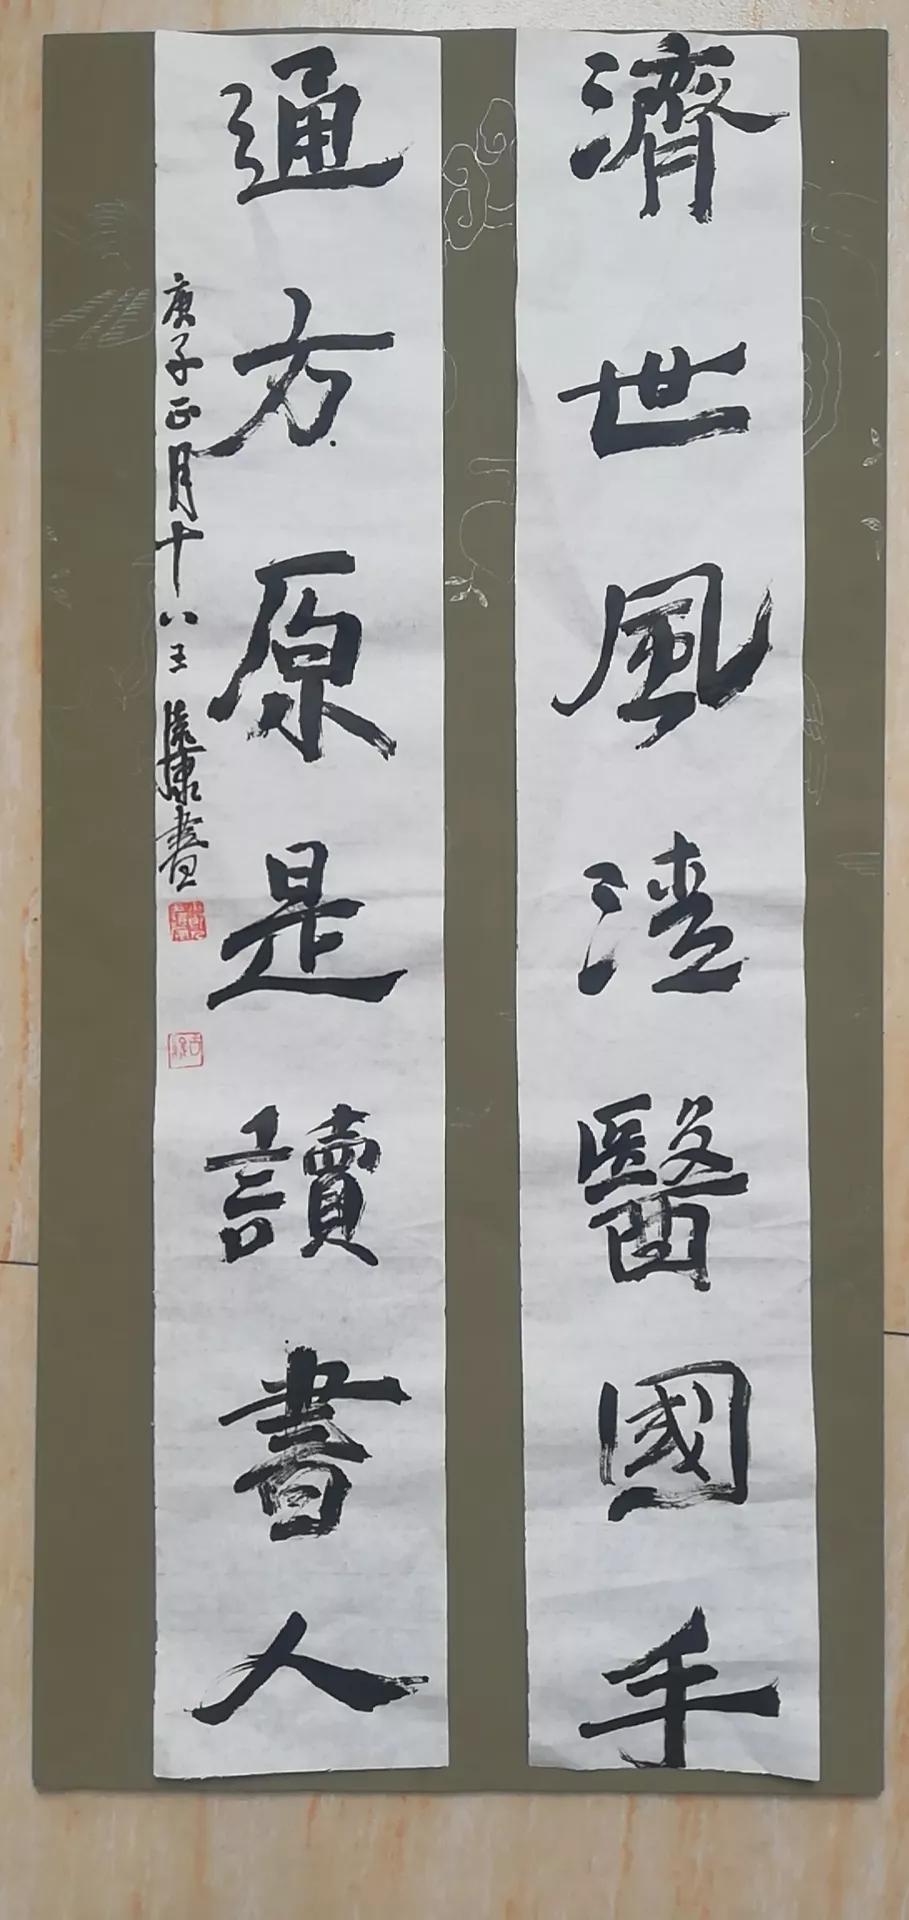 濟世風清醫國手
通方原是讀書人
庚子正月十八王康書